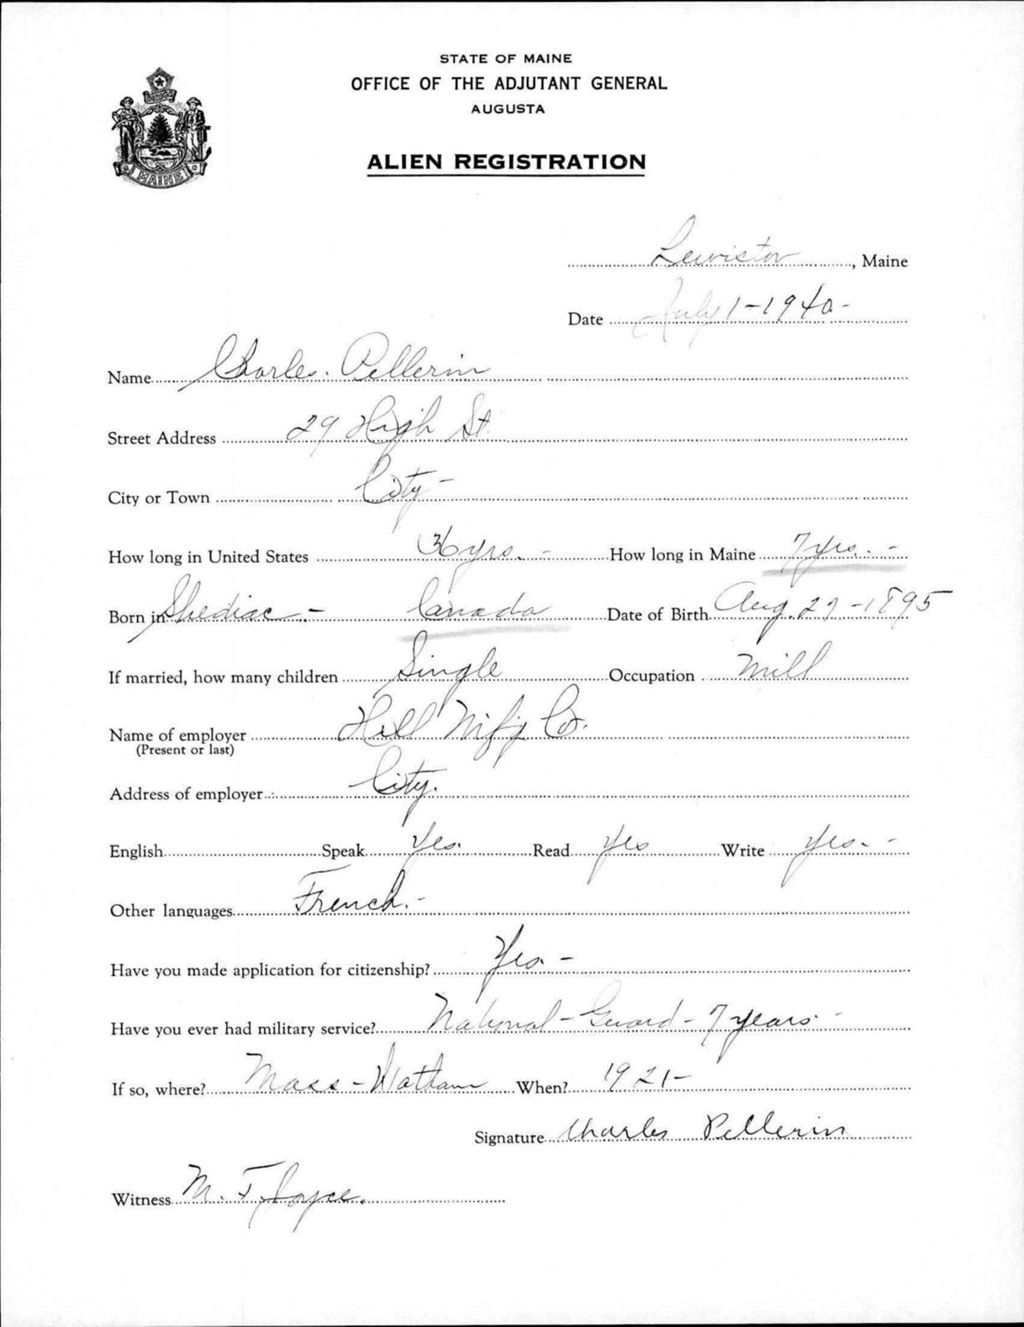 STATE OF MAINE
OFFICE OF THE ADJUTANT GENERAL
AUGUSTA
ALIEN REGISTRATION
MAINE
Lewiston, Maine
Date July 1-1940-
Name Charles Pellerin
Street Address 29 High St.
City or Town City-
How long in United States 36 yrs. - How long in Maine 7 yrs. -
Born in Shediac - Canada Date of Birth Aug. 27-1895
If married, how many children Single Occupation Mill
Name of employer Hill Mfg Co.
(Present or last)
Address of employer City.
English Speak Yes. Read Yes Write Yes. -
Other languages French. -
Have you made application for citizenship? Yes -
Have you ever had military service? National-Guard-7 years -
If so, where? Mass - Waltham When? 1921-
Signature Charles Pellerin
Witness M. T. Joyce.